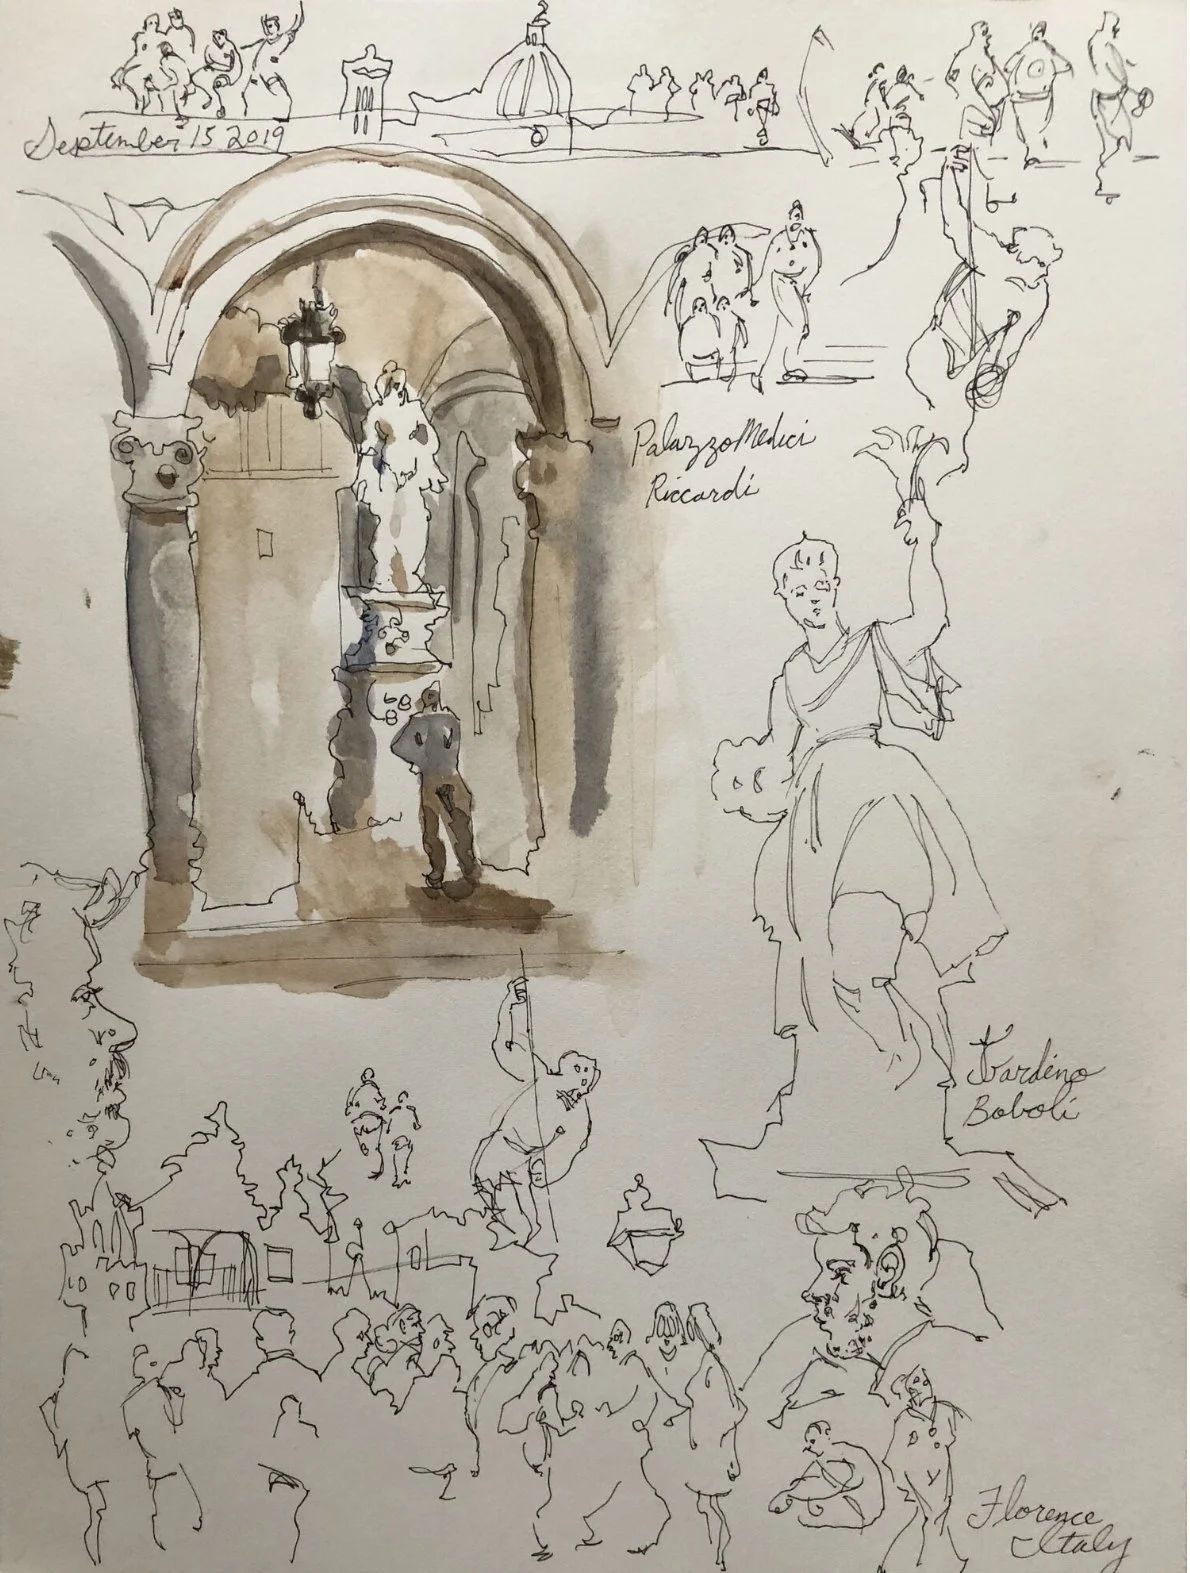 September 15 2019
Palazzo Medici
Riccardi
Giardino
Boboli
Florence
Italy